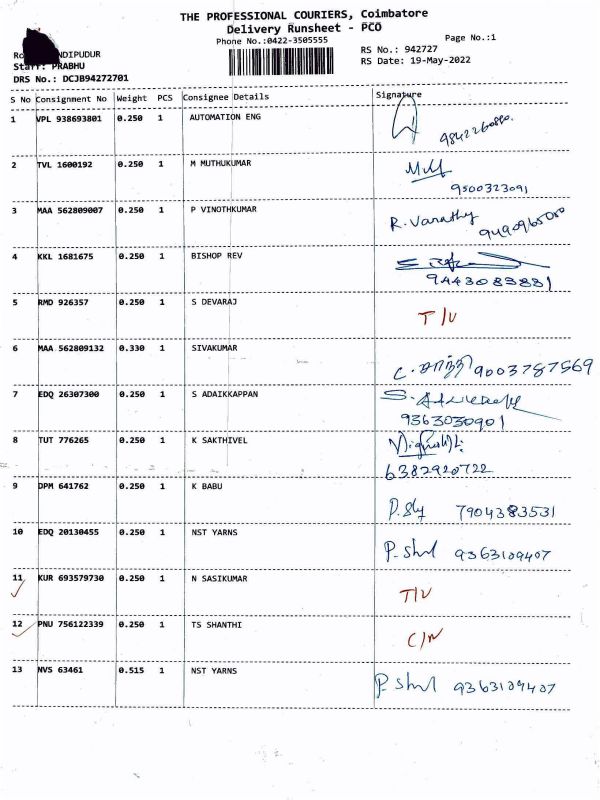 THE PROFESSIONAL COURIERS, Coimbatore
Delivery Runsheet - PCO
Phone No.:0422-3505555
Page No.:1
RS No.: 942727
RS Date: 19-May-2022
NDIPUDUR
Staff: PRABHU
DRS No.: DCJB94272701
S No Consignment No Weight PCS Consignee Details Signature
1 VPL 938693801 0.250 1 AUTOMATION ENG
2 TVL 1600192 0.250 1 M MUTHUKUMAR
9500323091
3 MAA 562809007 0.250 1 P VINOTHKUMAR R. Varathy
4 KKL 1681675 0.250 1 BISHOP REV
9443083881
5 RMD 926357 0.250 1 S DEVARAJ T/U
6 MAA 562809132 0.330 1 SIVAKUMAR
9003787569
7 EDQ 26307300 0.250 1 S ADAIKKAPPAN
9363030901
8 TUT 776265 0.250 1 K SAKTHIVEL
6382920722
9 DPM 641762 0.250 1 K BABU
7904383531
10 EDQ 20130455 0.250 1 NST YARNS
9363109407
11 KUR 693579730 0.250 1 N SASIKUMAR T/U
12 PNU 756122339 0.250 1 TS SHANTHI C/N
13 NVS 63461 0.515 1 NST YARNS 9363109407